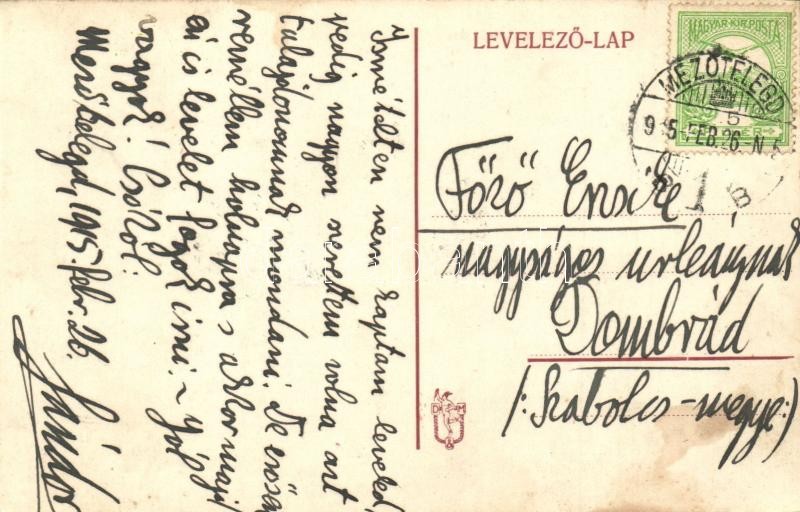 LEVELEZŐ-LAP
MAGYAR KIR. POSTA
MEZŐTELEGD
5
915 FEB. 26. N. 5
1 B
Főző Erzsike
nagyságos urleánynak
Dombrád
/: Szabolcs-megye :/
Ismételten nem kaptam leveled,
pedig nagyon szerettem volna azt
tulajdonomnak mondani. De erősen
remélem holnapra s akkor majd
én is levelet fogok irni. ~ Jól
vagyok! Csókol:
Mezőtelegd, 1915. febr. 26.
Sándor
D M